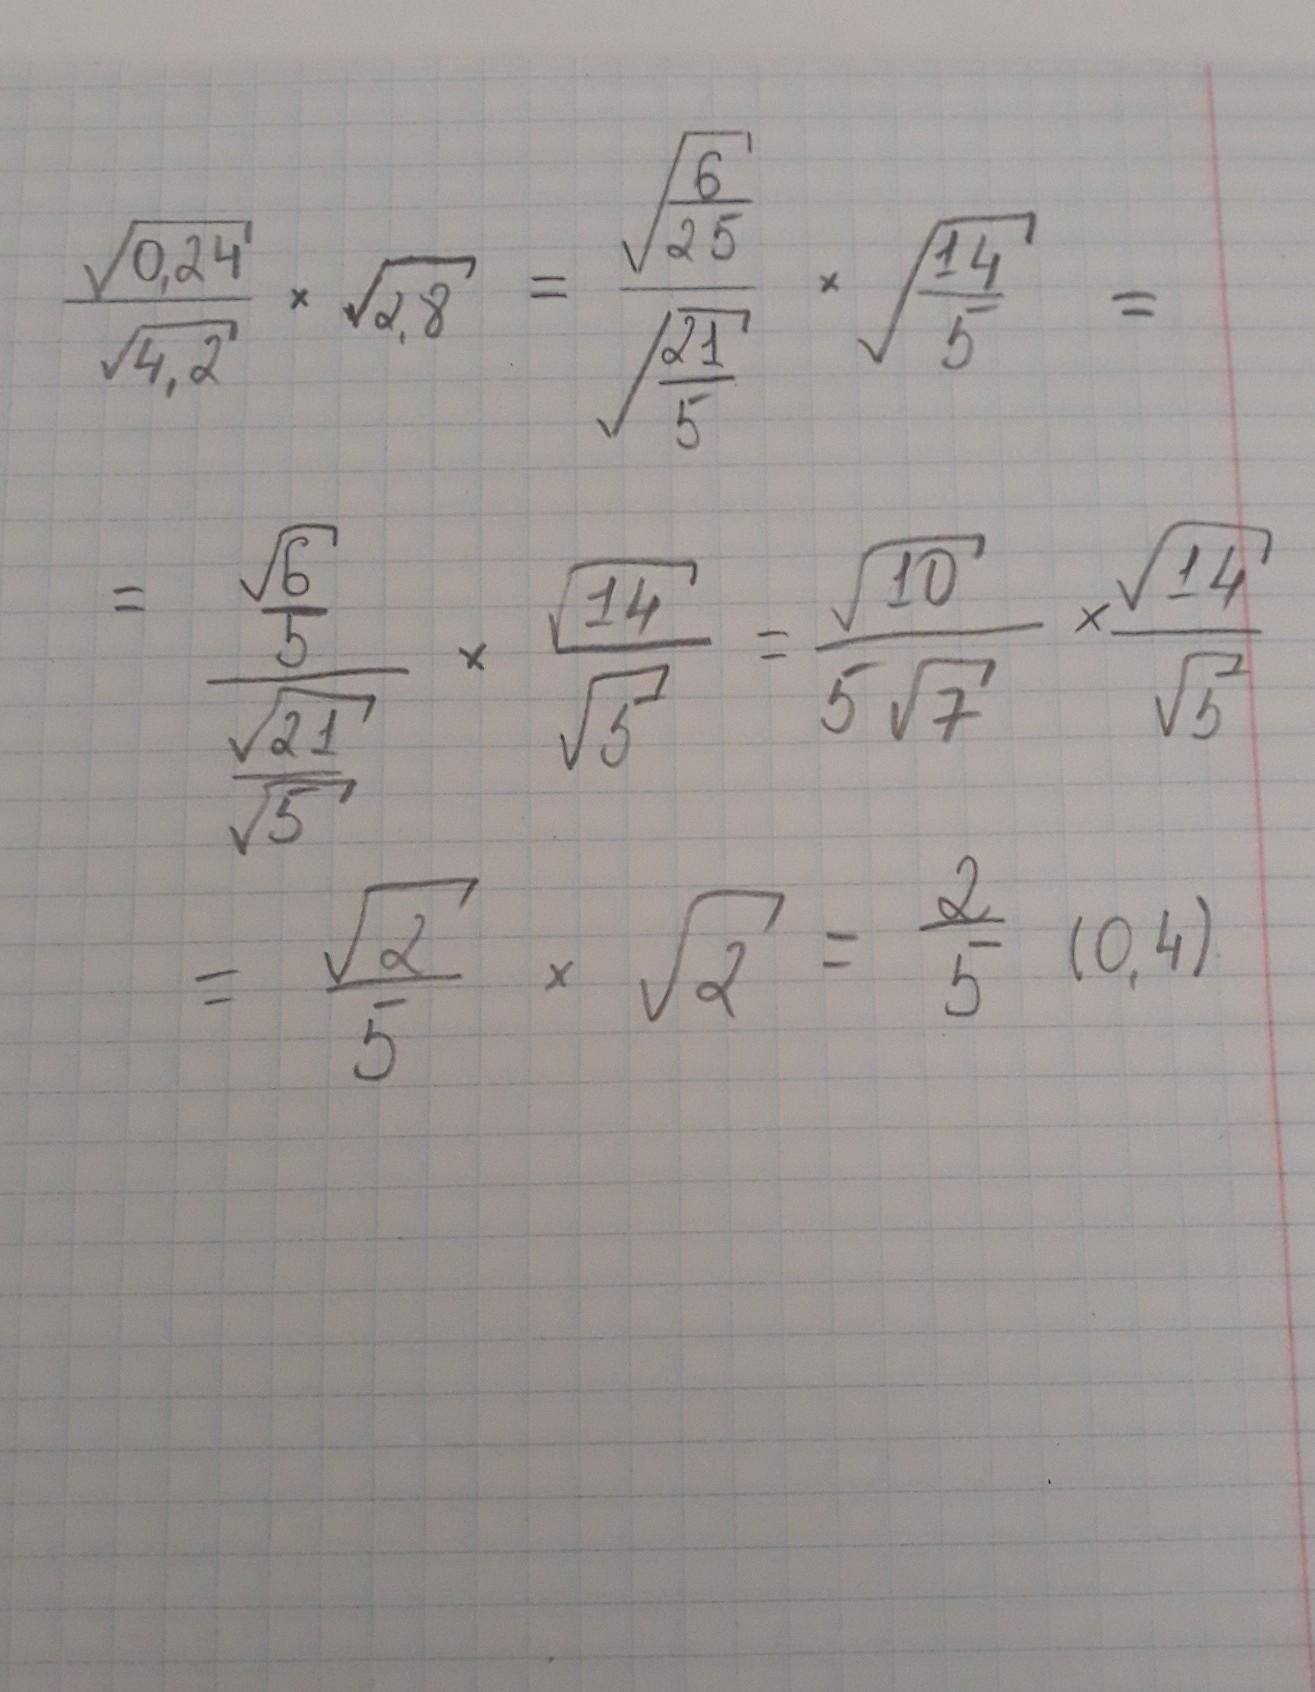 √0,24 / √4,2 × √2,8 = √(6/25) / √(21/5) × √(14/5) =
= (√6/5) / (√21/√5) × √14/√5 = √10 / 5√7 × √14/√5
= √2/5 × √2 = 2/5 (0,4)